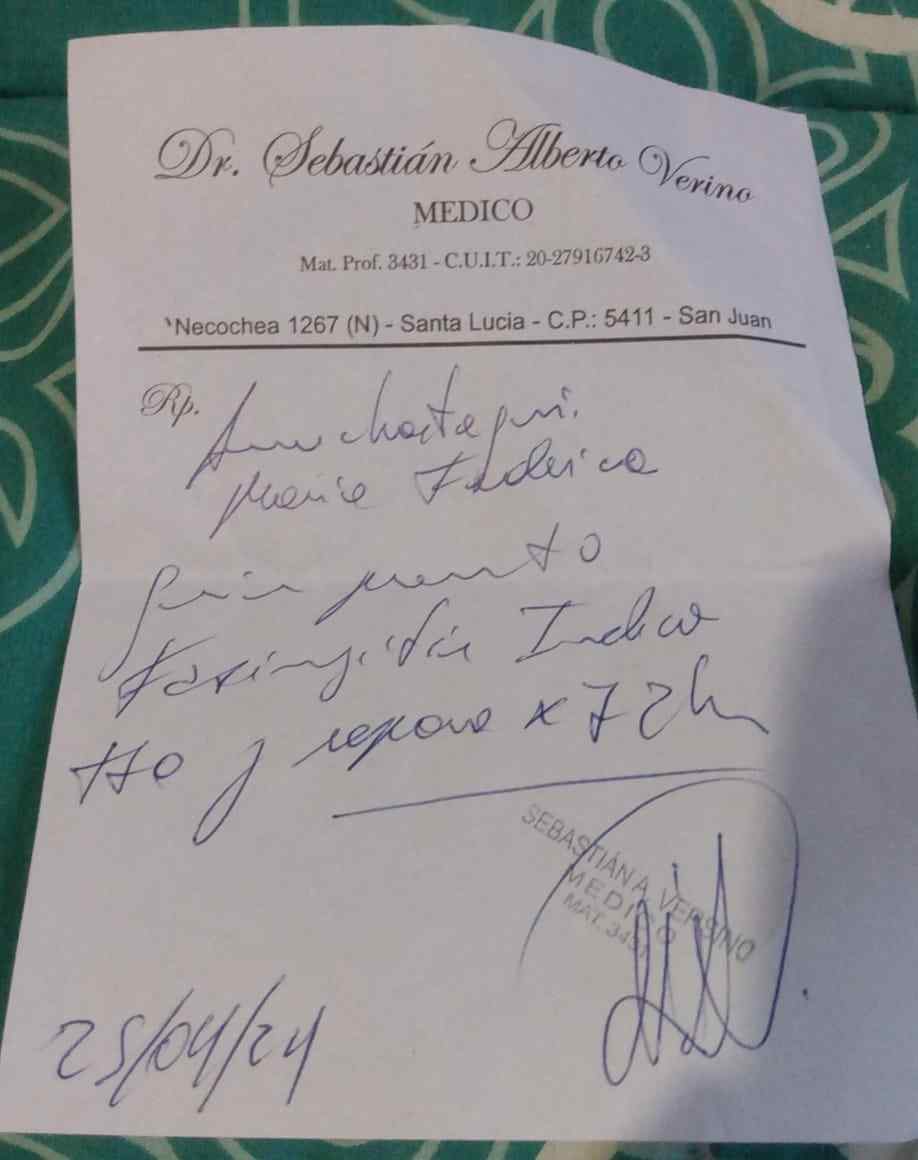 Dr. Sebastián Alberto Verino
MEDICO
Mat. Prof. 3431 - C.U.I.T.: 20-27916742-3
Necochea 1267 (N) - Santa Lucia - C.P.: 5411 - San Juan
Rp.
Maria Federica
Faringitis Indico
tto y reposo x 72h
SEBASTIÁN A. VERSINO
MEDICO
MAT. 3431
25/04/24